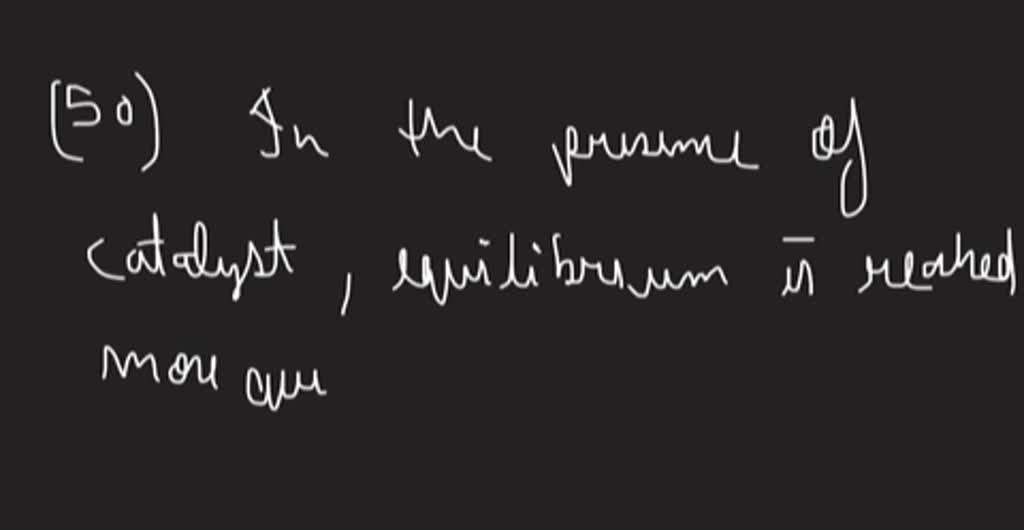 (50) In the presence of
catalyst, equilibrium is reached
more qui